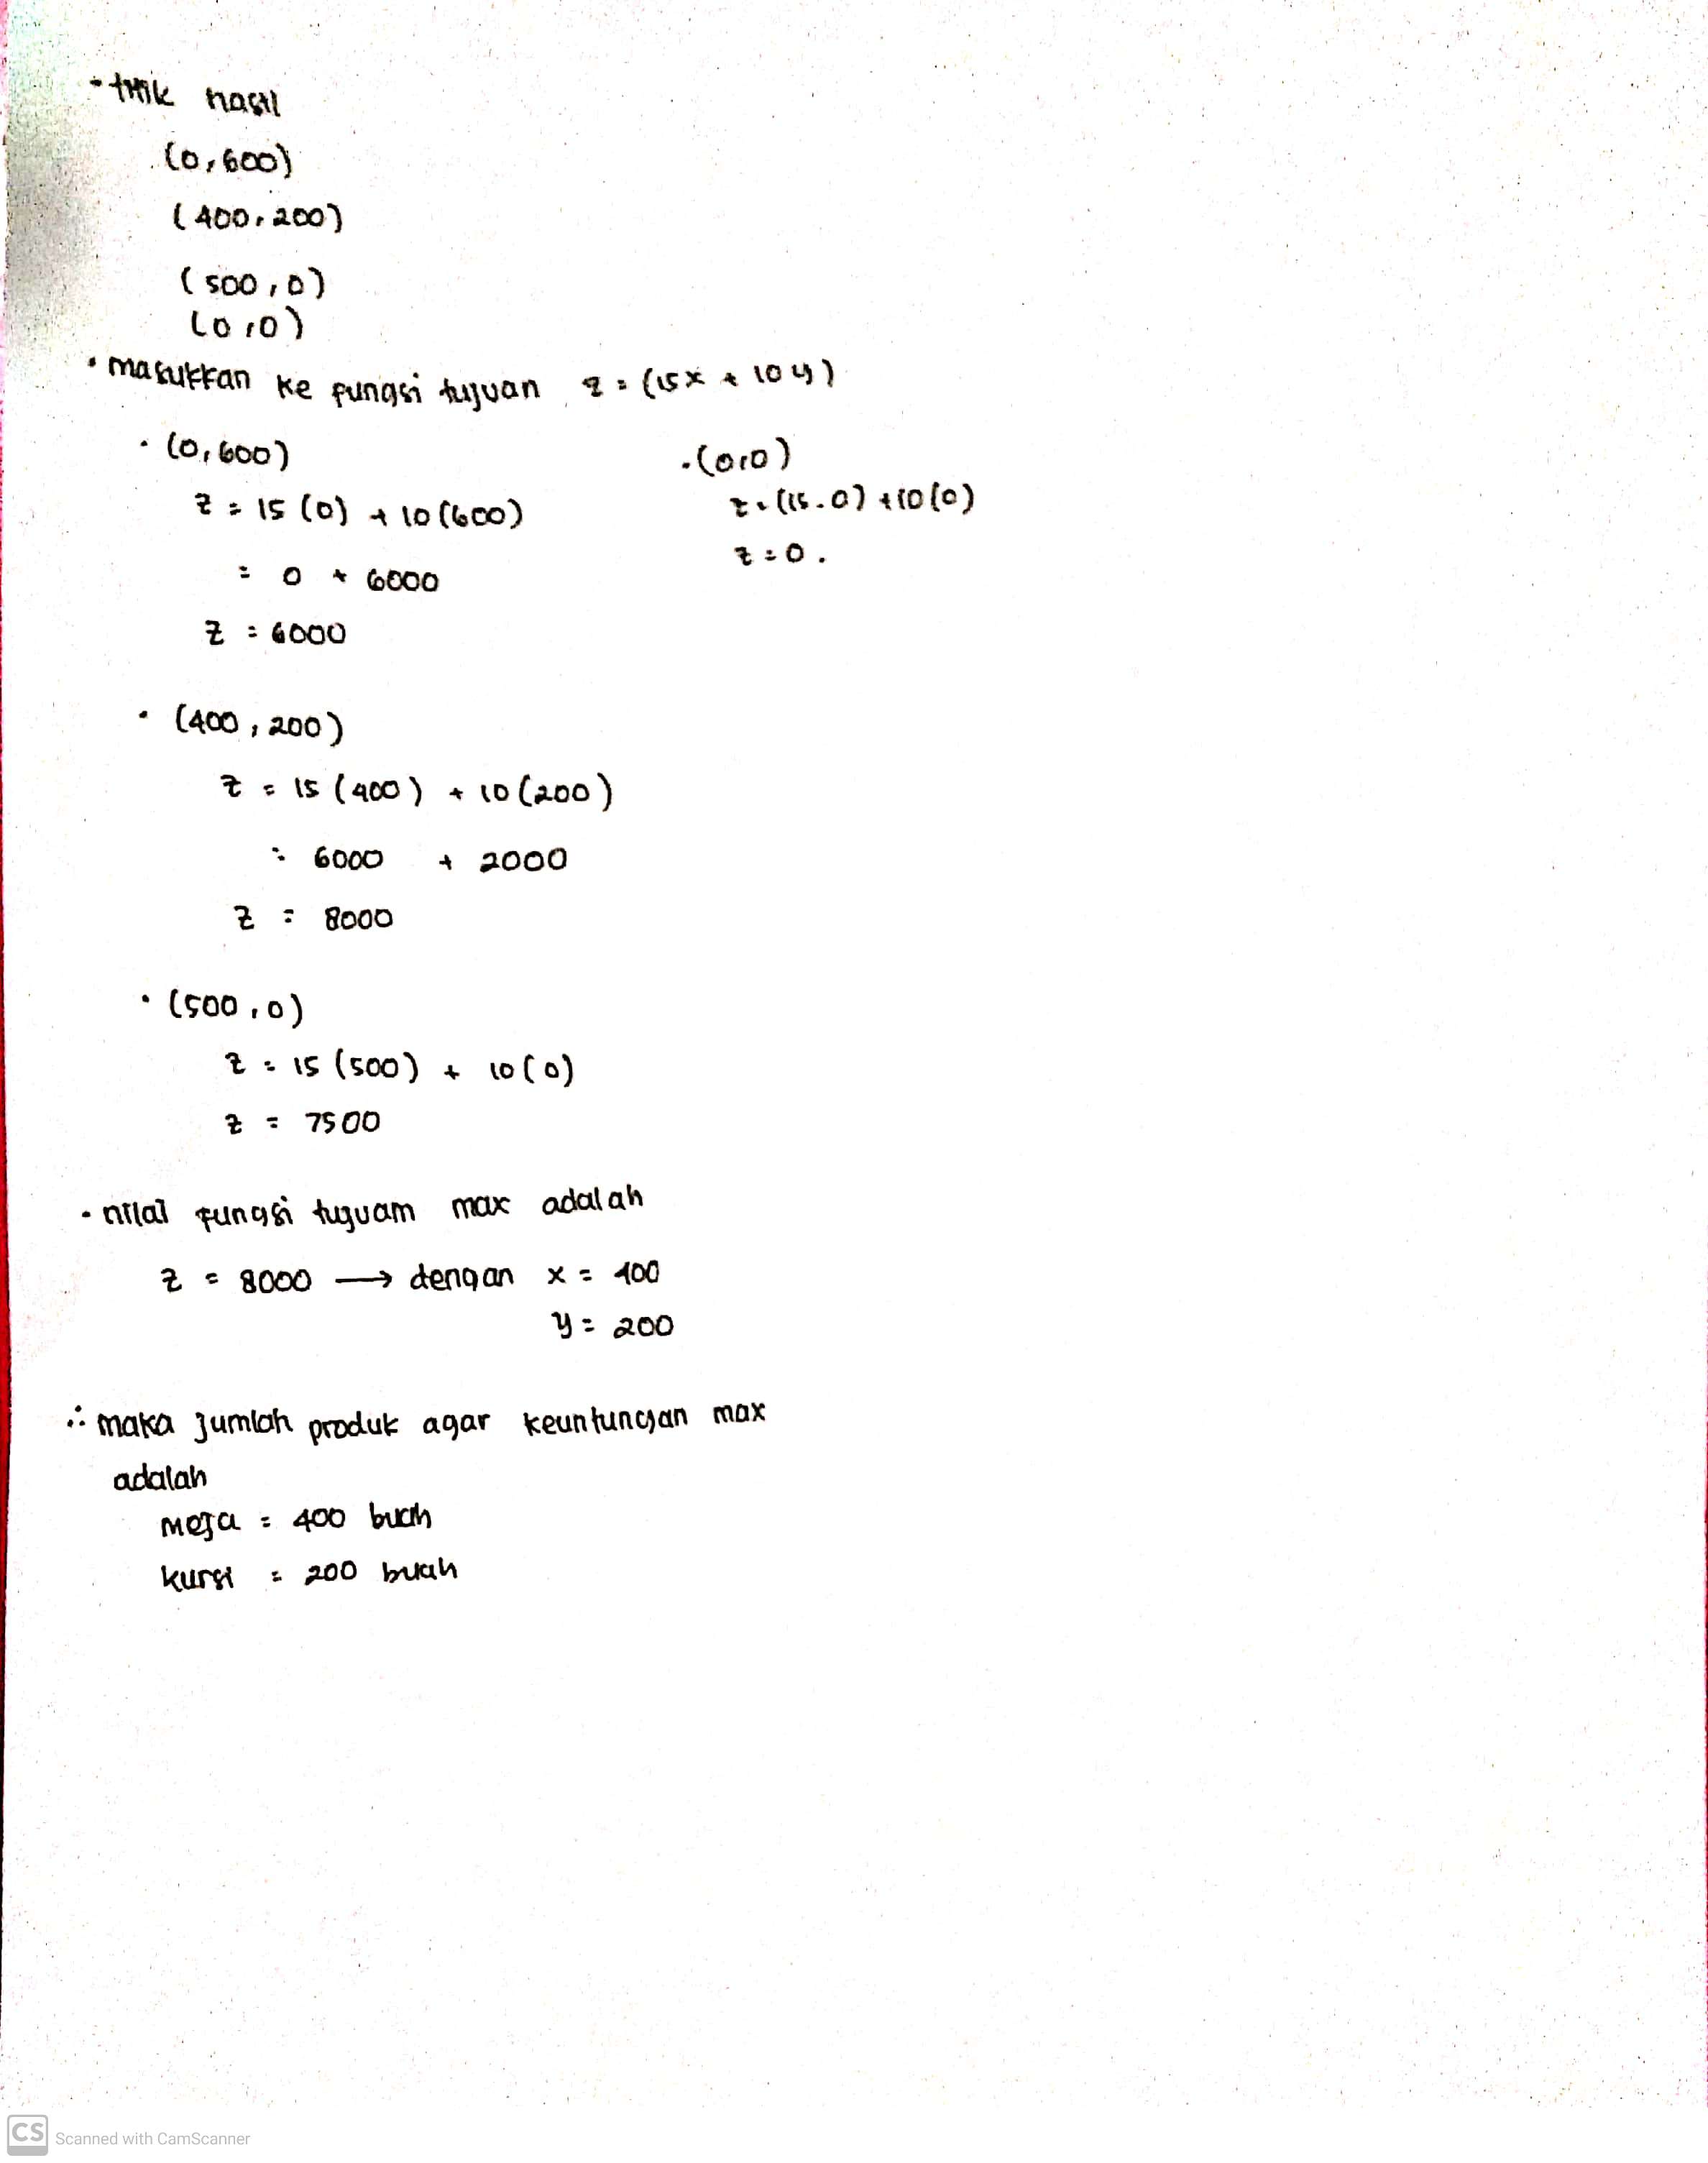 - titik hasil
(0,600)
(400,200)
(500,0)
(0,0)
• masukkan ke fungsi tujuan z = (15x + 10y)
• (0,600)
z = 15 (0) + 10 (600)
= 0 + 6000
z = 6000
• (0,0)
z = (15.0) + 10 (0)
z = 0.
• (400, 200)
z = 15 (400) + 10 (200)
= 6000 + 2000
z = 8000
• (500,0)
z = 15 (500) + 10 (0)
z = 7500
- nilai fungsi tuguam max adalah
z = 8000 → dengan x = 400
y = 200
∴ maka jumlah produk agar keuntungan max
adalah
meja = 400 buah
kursi = 200 buah
CS Scanned with CamScanner